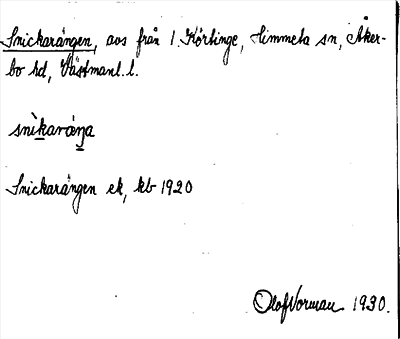 Snickarängen, avs från 1 Körtinge, Himmeta sn, Åker-
bo hd, Västmanl. l.
snìkaráŋa
Snickarängen ek, kb 1920
Olof Norman 1930.